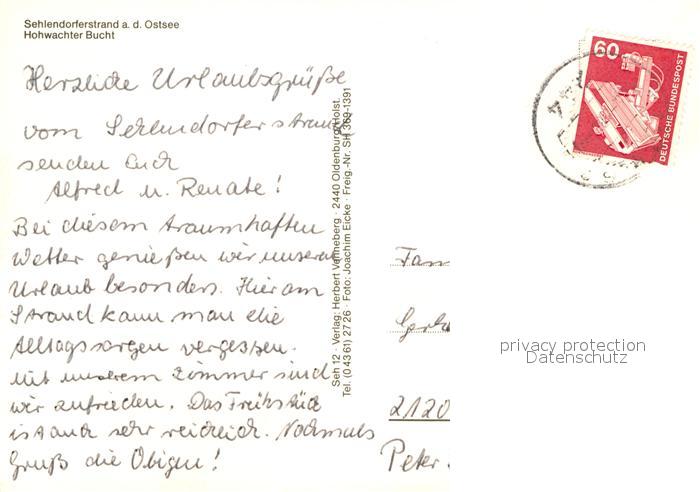 Sehlendorferstrand a. d. Ostsee
Hohwachter Bucht
Herzliche Urlaubsgrüße
vom Sehlendorfer Strand
senden Euch
Alfred u. Renate!
Bei diesem traumhaften
Wetter genießen wir unseren
Urlaub besonders. Hier am
Strand kann man die
Alltagssorgen vergessen.
Mit unserem Zimmer sind
wir zufrieden. Das Frühstück
ist auch sehr reichlich. Nochmals
Gruß die Obigen!
Seh 12 · Verlag: Herbert Vanneberg · 2440 Oldenburg/Holst.
Tel. (0 43 61) 27 26 · Foto: Joachim Eicke · Freig.-Nr. SH 369-1391
60
DEUTSCHE BUNDESPOST
Fam
2120
Peter
privacy protection
Datenschutz